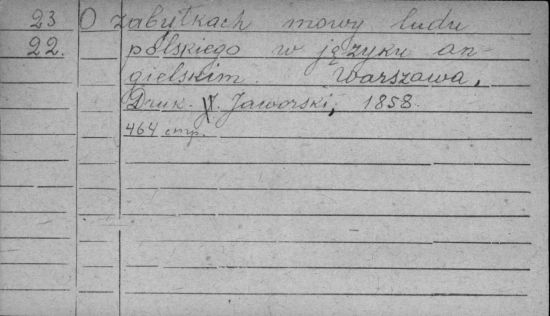 23 O zabytkach mowy ludu
22. polskiego w języku an-
gielskim. Warszawa,
Druk. J. Jaworski, 1858.
464 стр.